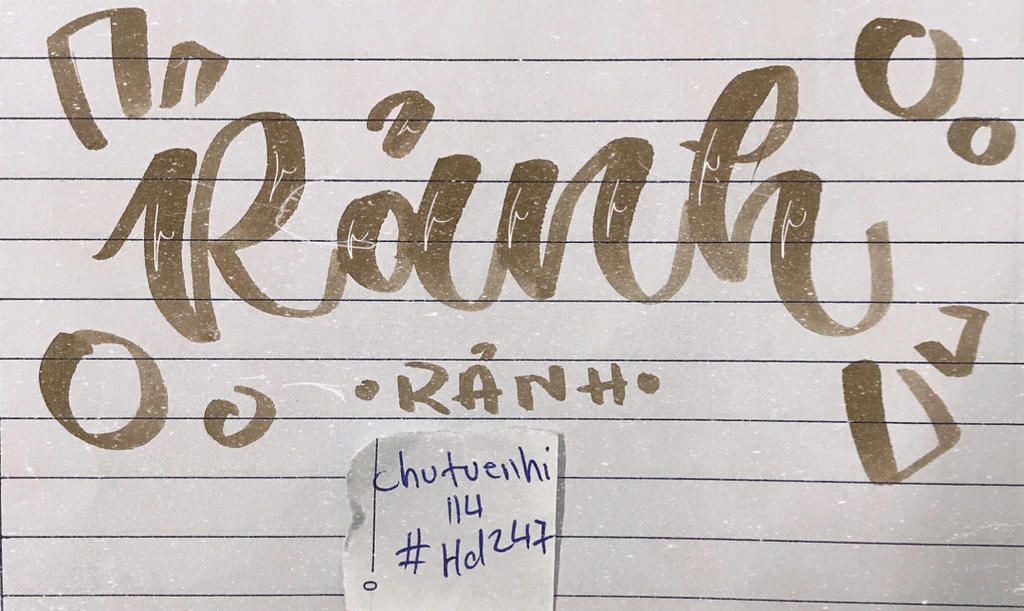 Rảnh
• RẢNH •
chutuenhi
114
#Hd247